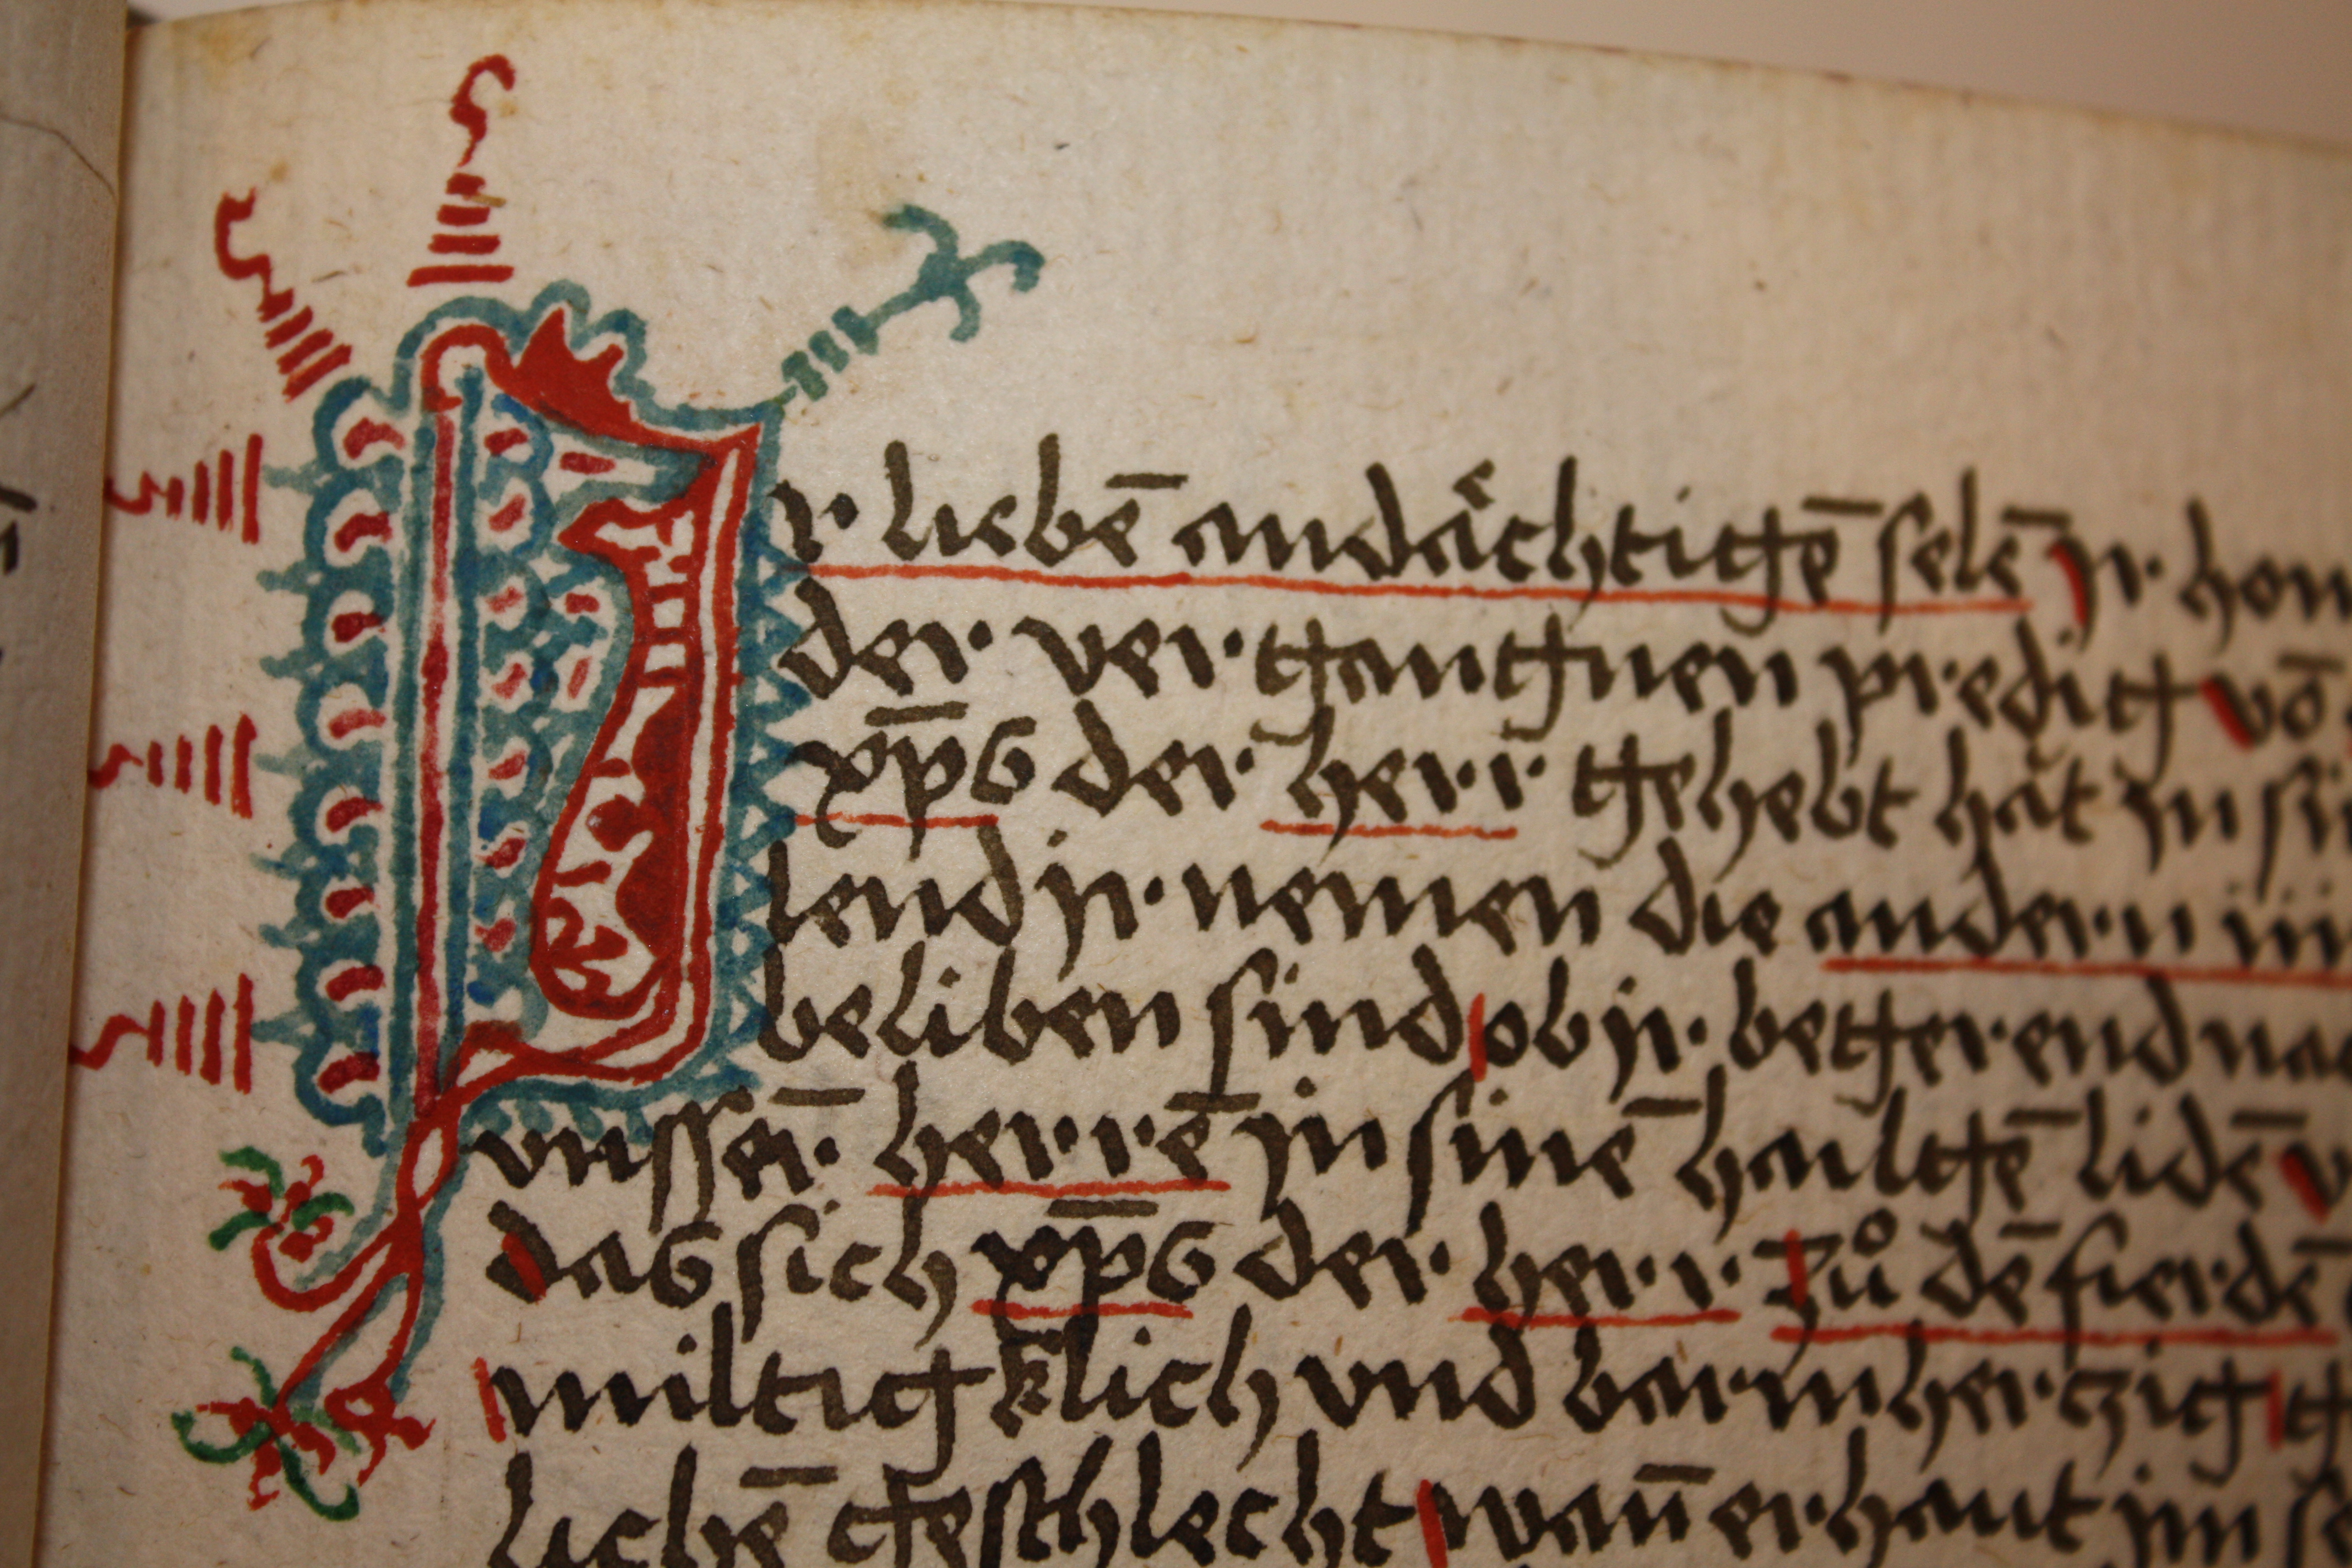 Ir lieben̄ andächtigē selē jr hon
der vergangnen predig vō
xp̄s der herr gehebt hät jn sin
lend jr nemen die andern iii
beliben sind ob jr begerend nac
vnsser̄ herrē jn sinē hailgē lidē v
das sich xp̄s der herr zů dē fierdē
miltigklich vnd barmherczig g
lichē geschlecht wan̄ er haut jm se